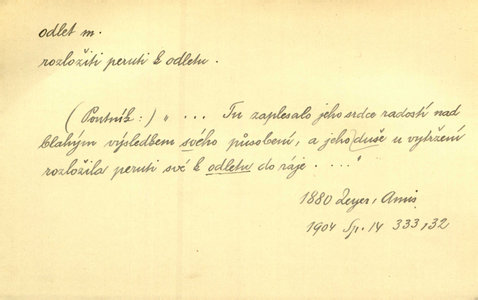 odlet m.
rozložiti peruti k odletu.
(Poutník:) „ ... Tu zaplesalo jeho srdce radostí nad
blahým výsledkem svého působení, a jeho duše u vytržení
rozložila peruti své k odletu do ráje ...."
1880 Zeyer, Amis
1904 Sp. 14 333,32